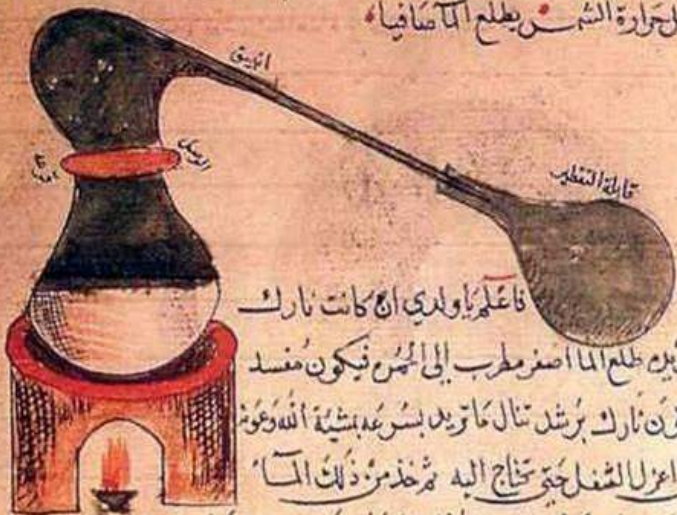 حرارة الشمس يطلع الما صافيا
انبيق
الوصل
قابلة التقطير
فاعلم يا ولدي ان كانت نارك
طلع الما اصفر مطرب الى الحمره فيكون مفسد
نارك برشد تنال ما تريد بسرعه بمشيئة الله وعونه
اعزل الثفل حتى تحتاج اليه ثم خذ من ذلك الما